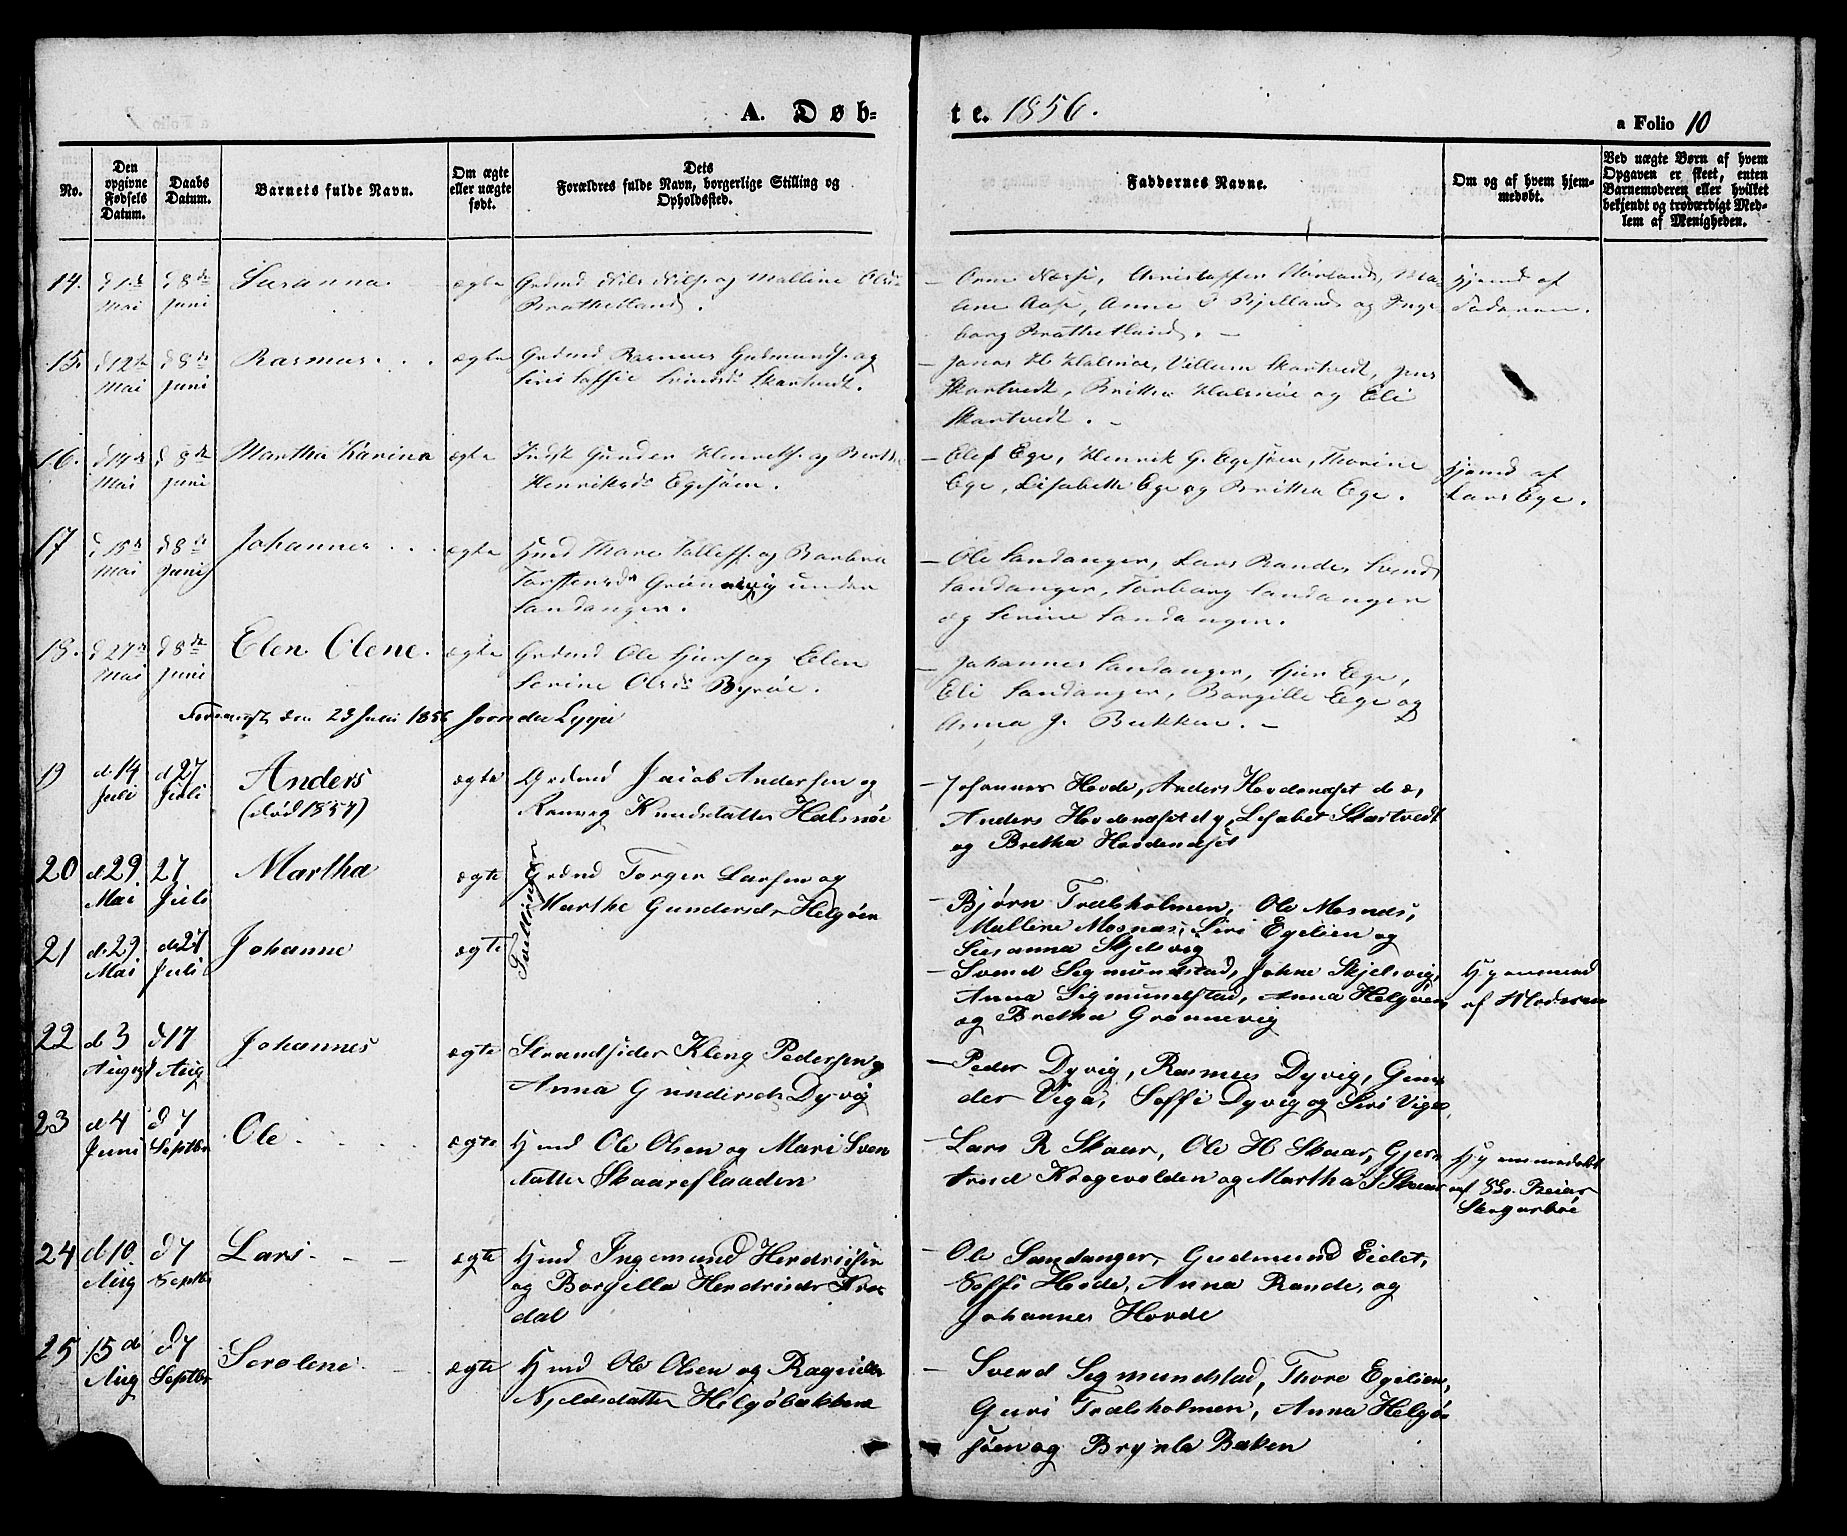 A. Døb-
te. 1856.
a Folio 10
No.
Den opgivne Fødsels Datum.
Daabs Datum.
Barnets fulde Navn.
Om ægte eller uægte født.
Dets Forældres fulde Navn, borgerlige Stilling og Opholdssted.
Faddernes Navne.
Om og af hvem hjemmedøbt.
Ved uægte Børn af hvem Opgaven er skeet, enten Barnemoderen eller hvilket bekjendt og troværdigt Medlem af Menigheden.
14. d 1ste Mai d 8de Juni Susanna ægte Grdmd Nils Nils. og Malline Olsd
Brathetland.
Aase, Anne Bjelland og Inge
borg Brathetland. –
hjemd af
Faderen.
15. d 12te Mai d 8de Juni Rasmus ægte Grdmd Rasmus Gudmunds. og
Siri Skartvedt.
– Jonas H. Halsnøe, Villum Skartvedt, Jens
Skartvedt, Britha Halsnøe og Eli
Skartvedt. –
16. d 14de Mai d 8de Juni Martha Karina ægte Indst Gunder Henriks. og Berthe
Henriksd. Egesöen.
– Elef Ege, Henrik G. Egesöen, Thorine
Ege, Lisabeth Ege og Britha Ege.
hjemd af
Lars Ege.
17 d 15de Mai d 8de Juni Johannes ægte Hmd Thore Tollefs. og Barbra
Torstensd. Grönnevig under
Sandanger.
– Ole Sandanger, Lars Rande, Svend
Sandanger, Torborg Sandanger
og Serine Sandanger.
18. d 27de Mai d 8de Juni Elen Olene. ægte Grdmd Ole og Elen
Serine Olsd. Byröe.
– Johannes Sandanger, Ege,
Eli Sandanger, Borgille Ege og
Anna J. Bakken. –
den 23 Juli 1856
19 d. 14 Juli d 27 Juli Anders (død 1857) ægte Grdmd Jacob Andersen og
Ranveg Knudsdatter Halsnöe
– Johannes Hovde, Anders Hovdenæset d æ,
Anders Hovdenæset d y, Lisabet Skartvedt
og Bretha Hovdenæset
20 d 29 Mai 27 Juli Martha ægte Grdmd Torger Larsen og
Marthe Gundersd. Helgöen
Tvillinger
– Bjørn Trælsholmen, Ole Mosnæs,
Malline Mosnæs, Siri Egelien og
Susanna Skjelsvig
21 d. 29 Mai d 27 Juli Johanne ægte
– Svend Sigmundstad, Johne Skjelsvig,
Anna Sigmundstad, Anna Helgöen
og Bretha Grönnevig
af Moderen
22 d 3 August d 17 Aug Johannes ægte Strandsider Kleng Pedersen og
Anna Gundersd. Dyvig
– Peder Dyvig, Rasmus Dyvig, Gun
der Viga, Soffi Dyvig og Siri Viga.
23 d 4 Juni d 7 Septbr Ole ægte Hmd Ole Olsen og Mari Sven
datter Skaareflaaden
– Lars R Skaar, Ole H Skaar, Gjer
trud Krogevolden og Martha S Skaar
Hjemmedøbt
af
24 d 10 Aug d 7 Septbr Lars ægte Hmd Ingemund Hendriksen
og Borgilla Hendriksd.
dal
– Ole Sandanger, Gudmund Eidet,
Soffi Hovde, Anna Rande, og
Johannes Hovde
25 15 d Aug d 7 Septbr Serolene ægte Hmd Ole Olsen og Ragnilda
Njeldsdatter Helgöbakken
– Svend Sigmundstad, Thore Egelien,
Guri Trælsholmen, Anna Helgö
söen og Bakken